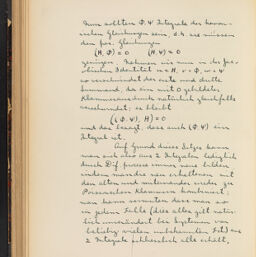 Nun sollten φ, ψ Integrale der kanoni-
schen Gleichungen sein, d.h. sie müssen
den par. Gleichungen
(H, φ) = 0   (H, ψ) = 0
genügen. Nehmen wir nun in der Jaco-
bischen Identität u = H, v = φ, w = ψ
so verschwindet das erste und dritte
Summand, da ein mit 0 gebildetes
Klammerausdruck natürlich gleichfalls
verschwindet; es bleibt
((φ, ψ), H) = 0
und das besagt, dass auch (φ, ψ) ein
Integral ist.
Auf Grund dieses Satzes kann
man sich also aus 2 Integralen lediglich
durch Dif. immer neue bilden,
indem man die neu erhaltenen mit
den alten und untereinander wieder zu
Poissonschen Klammern kombiniert;
man kann vermuten dass man so
in jedem Falle (dies alles gilt natür-
lich unverändert bei Systemen von
beliebig vielen unbekannten Fkt) aus
2 Integralen schliesslich alle erhält,